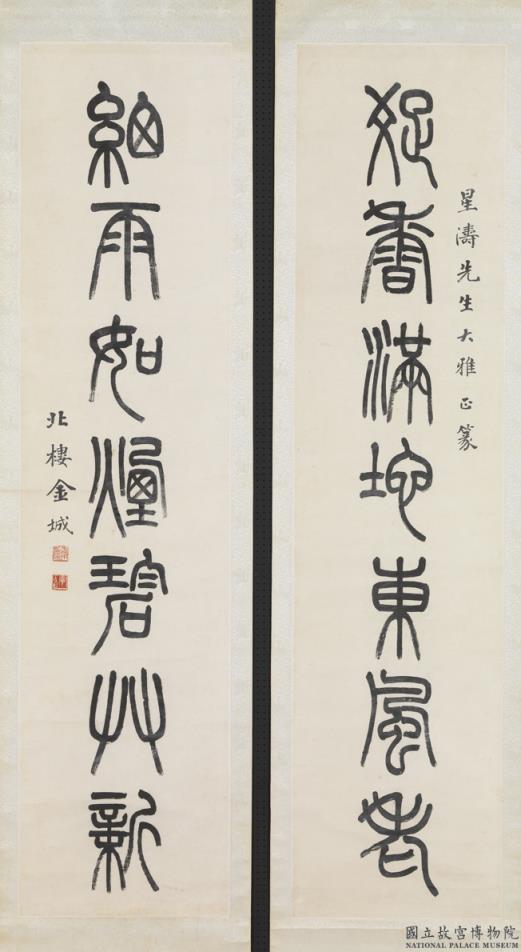 星濤先生大雅正篆
香滿地東風老
細雨如煙碧艸新
北樓金城
國立故宮博物院
NATIONAL PALACE MUSEUM